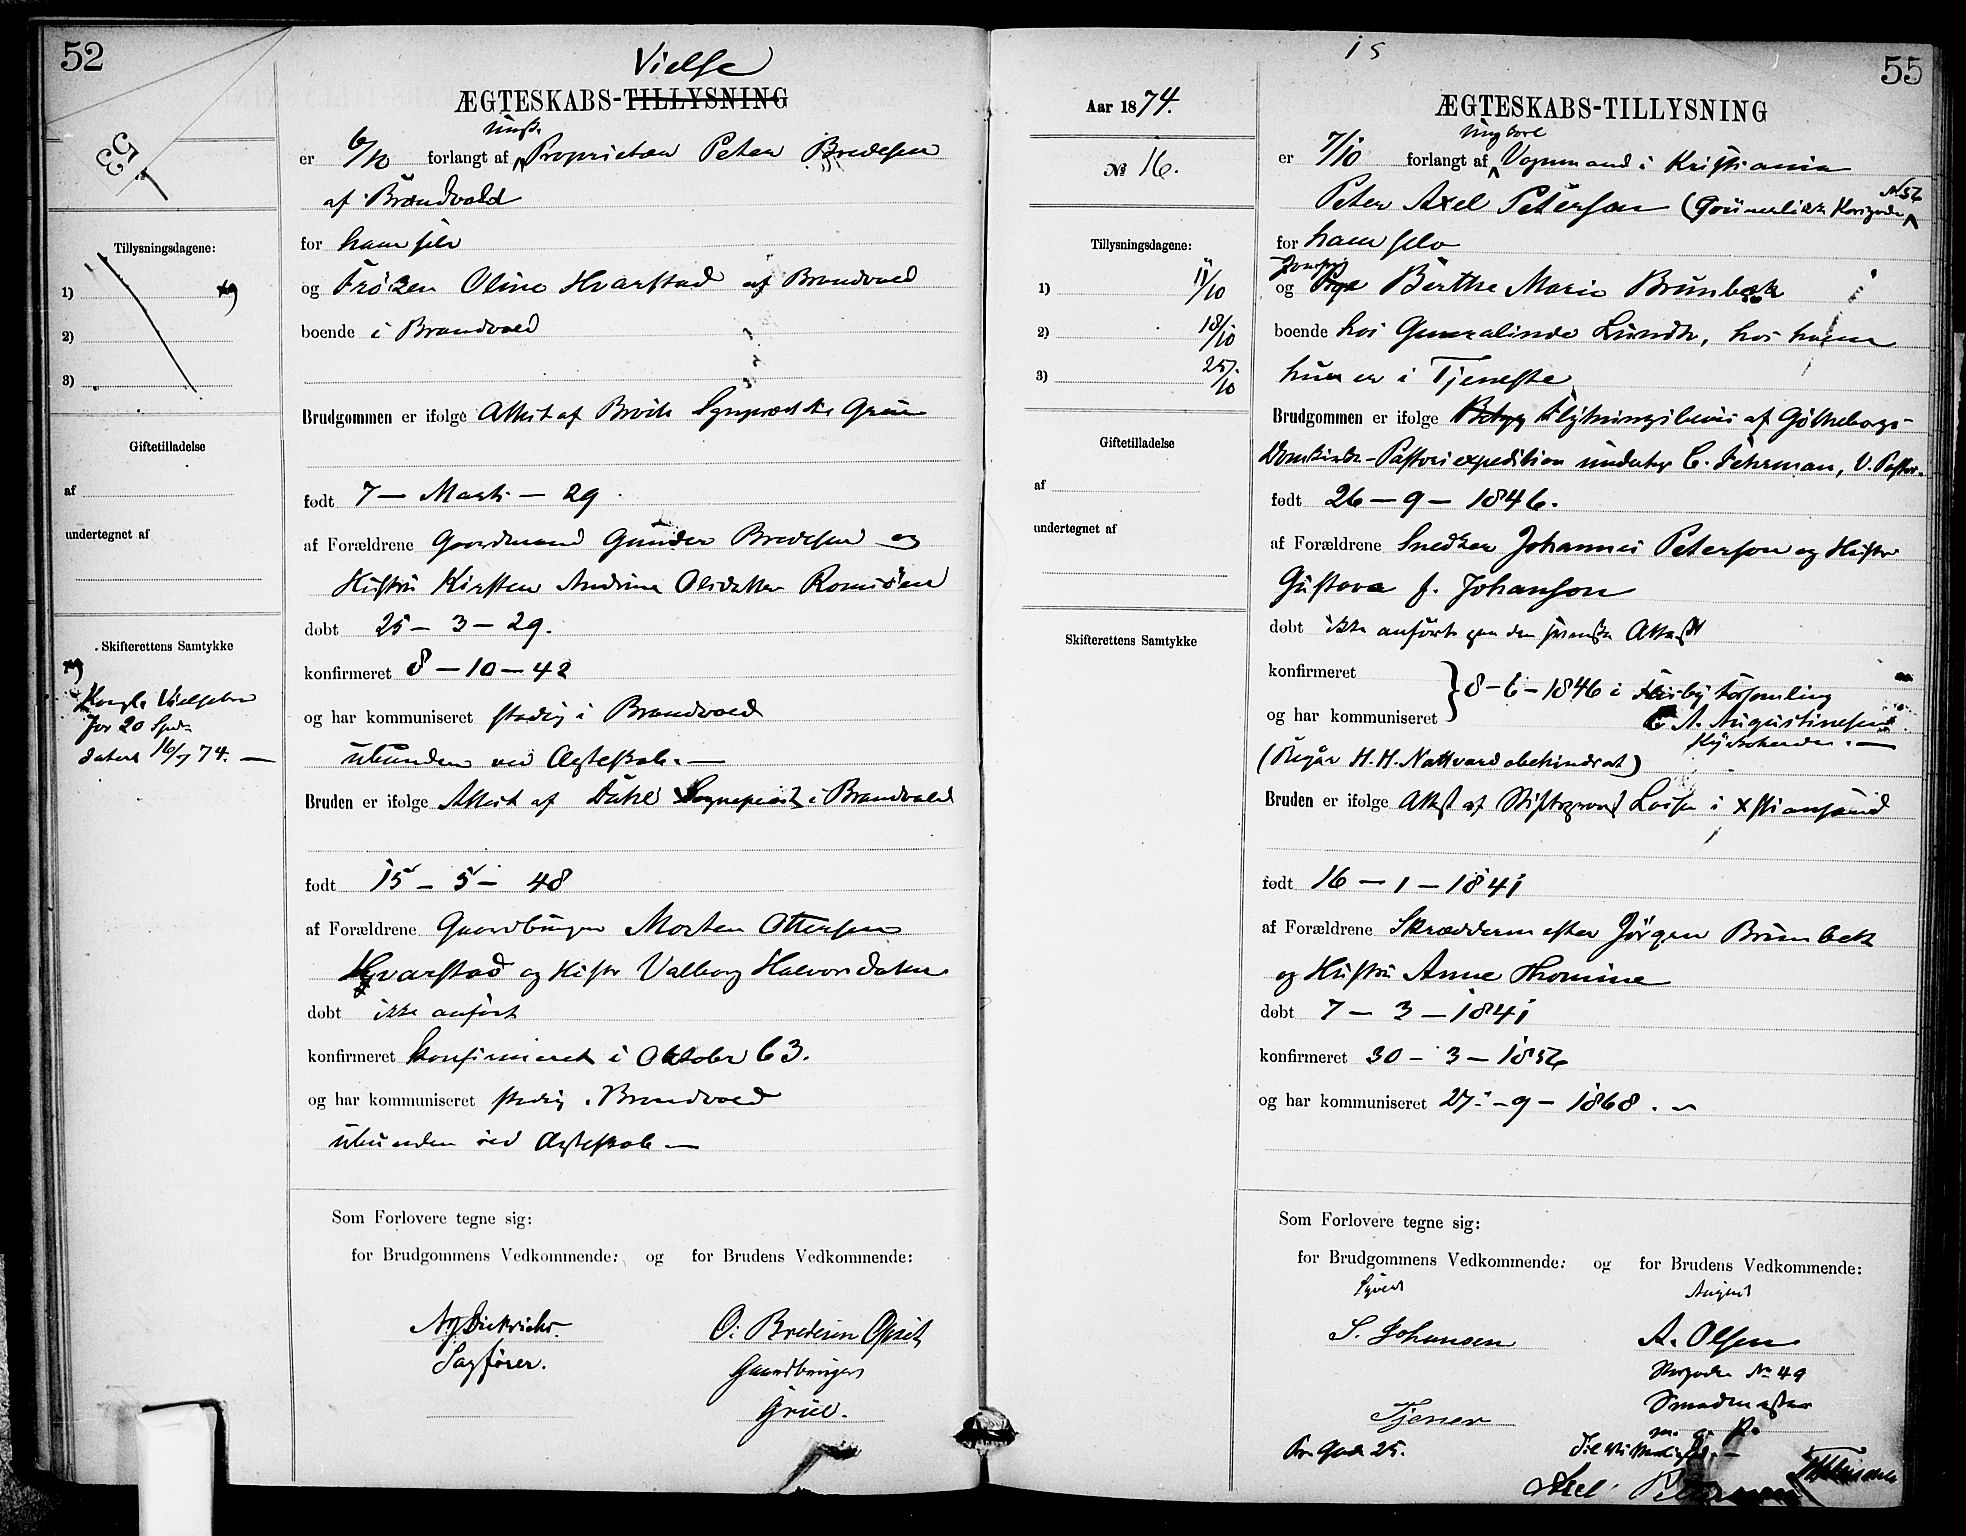 52
53
Vielse
ÆGTESKABS-TILLYSNING
er 6/10 forlangt af Proprietær Peter Bredesen
af Brandvold
for ham selv
og Frøken Oline Hvarstad af Brandvold
boende i Brandvold
Brudgommen er ifølge Attest af
født 7 – Marts – 29.
af Forældrene Gaardmand Gunder Bredesen og
Hustru Kirsten Andrine Olsdatter
døbt 25 – 3 – 29.
konfirmeret 8 – 10 – 42
og har kommuniseret stadig i Brandvold
ubunden ved Ægteskab. —
Bruden er ifølge Attest af Dahl Sognepræst i Brandvold
født 15 – 5 – 48
af Forældrene Gaardbruger Morten Ottersen
Hvarstad og Hustr Valborg Halvorsdatter
døbt ikke anført
konfirmeret konfirmeret i Oktober 63.
og har kommuniseret stadig i Brandvold
ubunden ved Ægteskab —
Tillysningsdagene:
1)
2)
3)
Giftetilladelse
af
undertegnet af
Skifterettens Samtykke
Kongl. Vielsebrev
for 20 Spd.
dateret 16/7 74. —
Som Forlovere tegne sig:
for Brudgommens Vedkommende: og for Brudens Vedkommende:
Sagfører.
O. Bredesen Opset
Gaardbruger
Grue.
15
55
Aar 1874.
№ 16.
Tillysningsdagene:
1) 11/10
2) 18/10
3) 25/10
Giftetilladelse
af
undertegnet af
Skifterettens Samtykke
ÆGTESKABS-TILLYSNING
er 7/10 forlangt af Ungkarl Vognmand i Kristiania
Peter Axel Peterson (Grünerløkken № 56
for ham selv
og Pige Berthe Marie Brunbæk
boende hos Generalinde Lunde, hos hvem
hun er i Tjeneste
Brudgommen er ifølge Flytningsbevis af Gøtheborgs-
Domkirke-Pastorsexpedition undertegn C. Fehrman, V. Pastor.
født 26 – 9 – 1846.
af Forældrene Snedker Johannes Peterson og Hustr
Gustava f. Johanson
døbt ikke anført paa den svenske Attest
konfirmeret
og har kommuniseret } 8–6–1846 i Församling
A. Augustinesen
Kyrkoherde. —
(Begår H.H. Nattvard obehindrat)
Bruden er ifølge Attest af Stiftsprovst i Xstiansund
født 16 – 1 – 1841
af Forældrene Skræddermester Jörgen Brunbek
og Hustru Anne Thomine
døbt 7 – 3 – 1841
konfirmeret 30 – 3 – 1856
og har kommuniseret 27 – 9 – 1868.
Som Forlovere tegne sig:
for Brudgommens Vedkommende: og for Brudens Vedkommende:
August
S. Johansen
A. Olsen
№ 49
Smedmester
Tjener
m. p. P.
25.
Til Vitterlighed. —
Axel Peterson